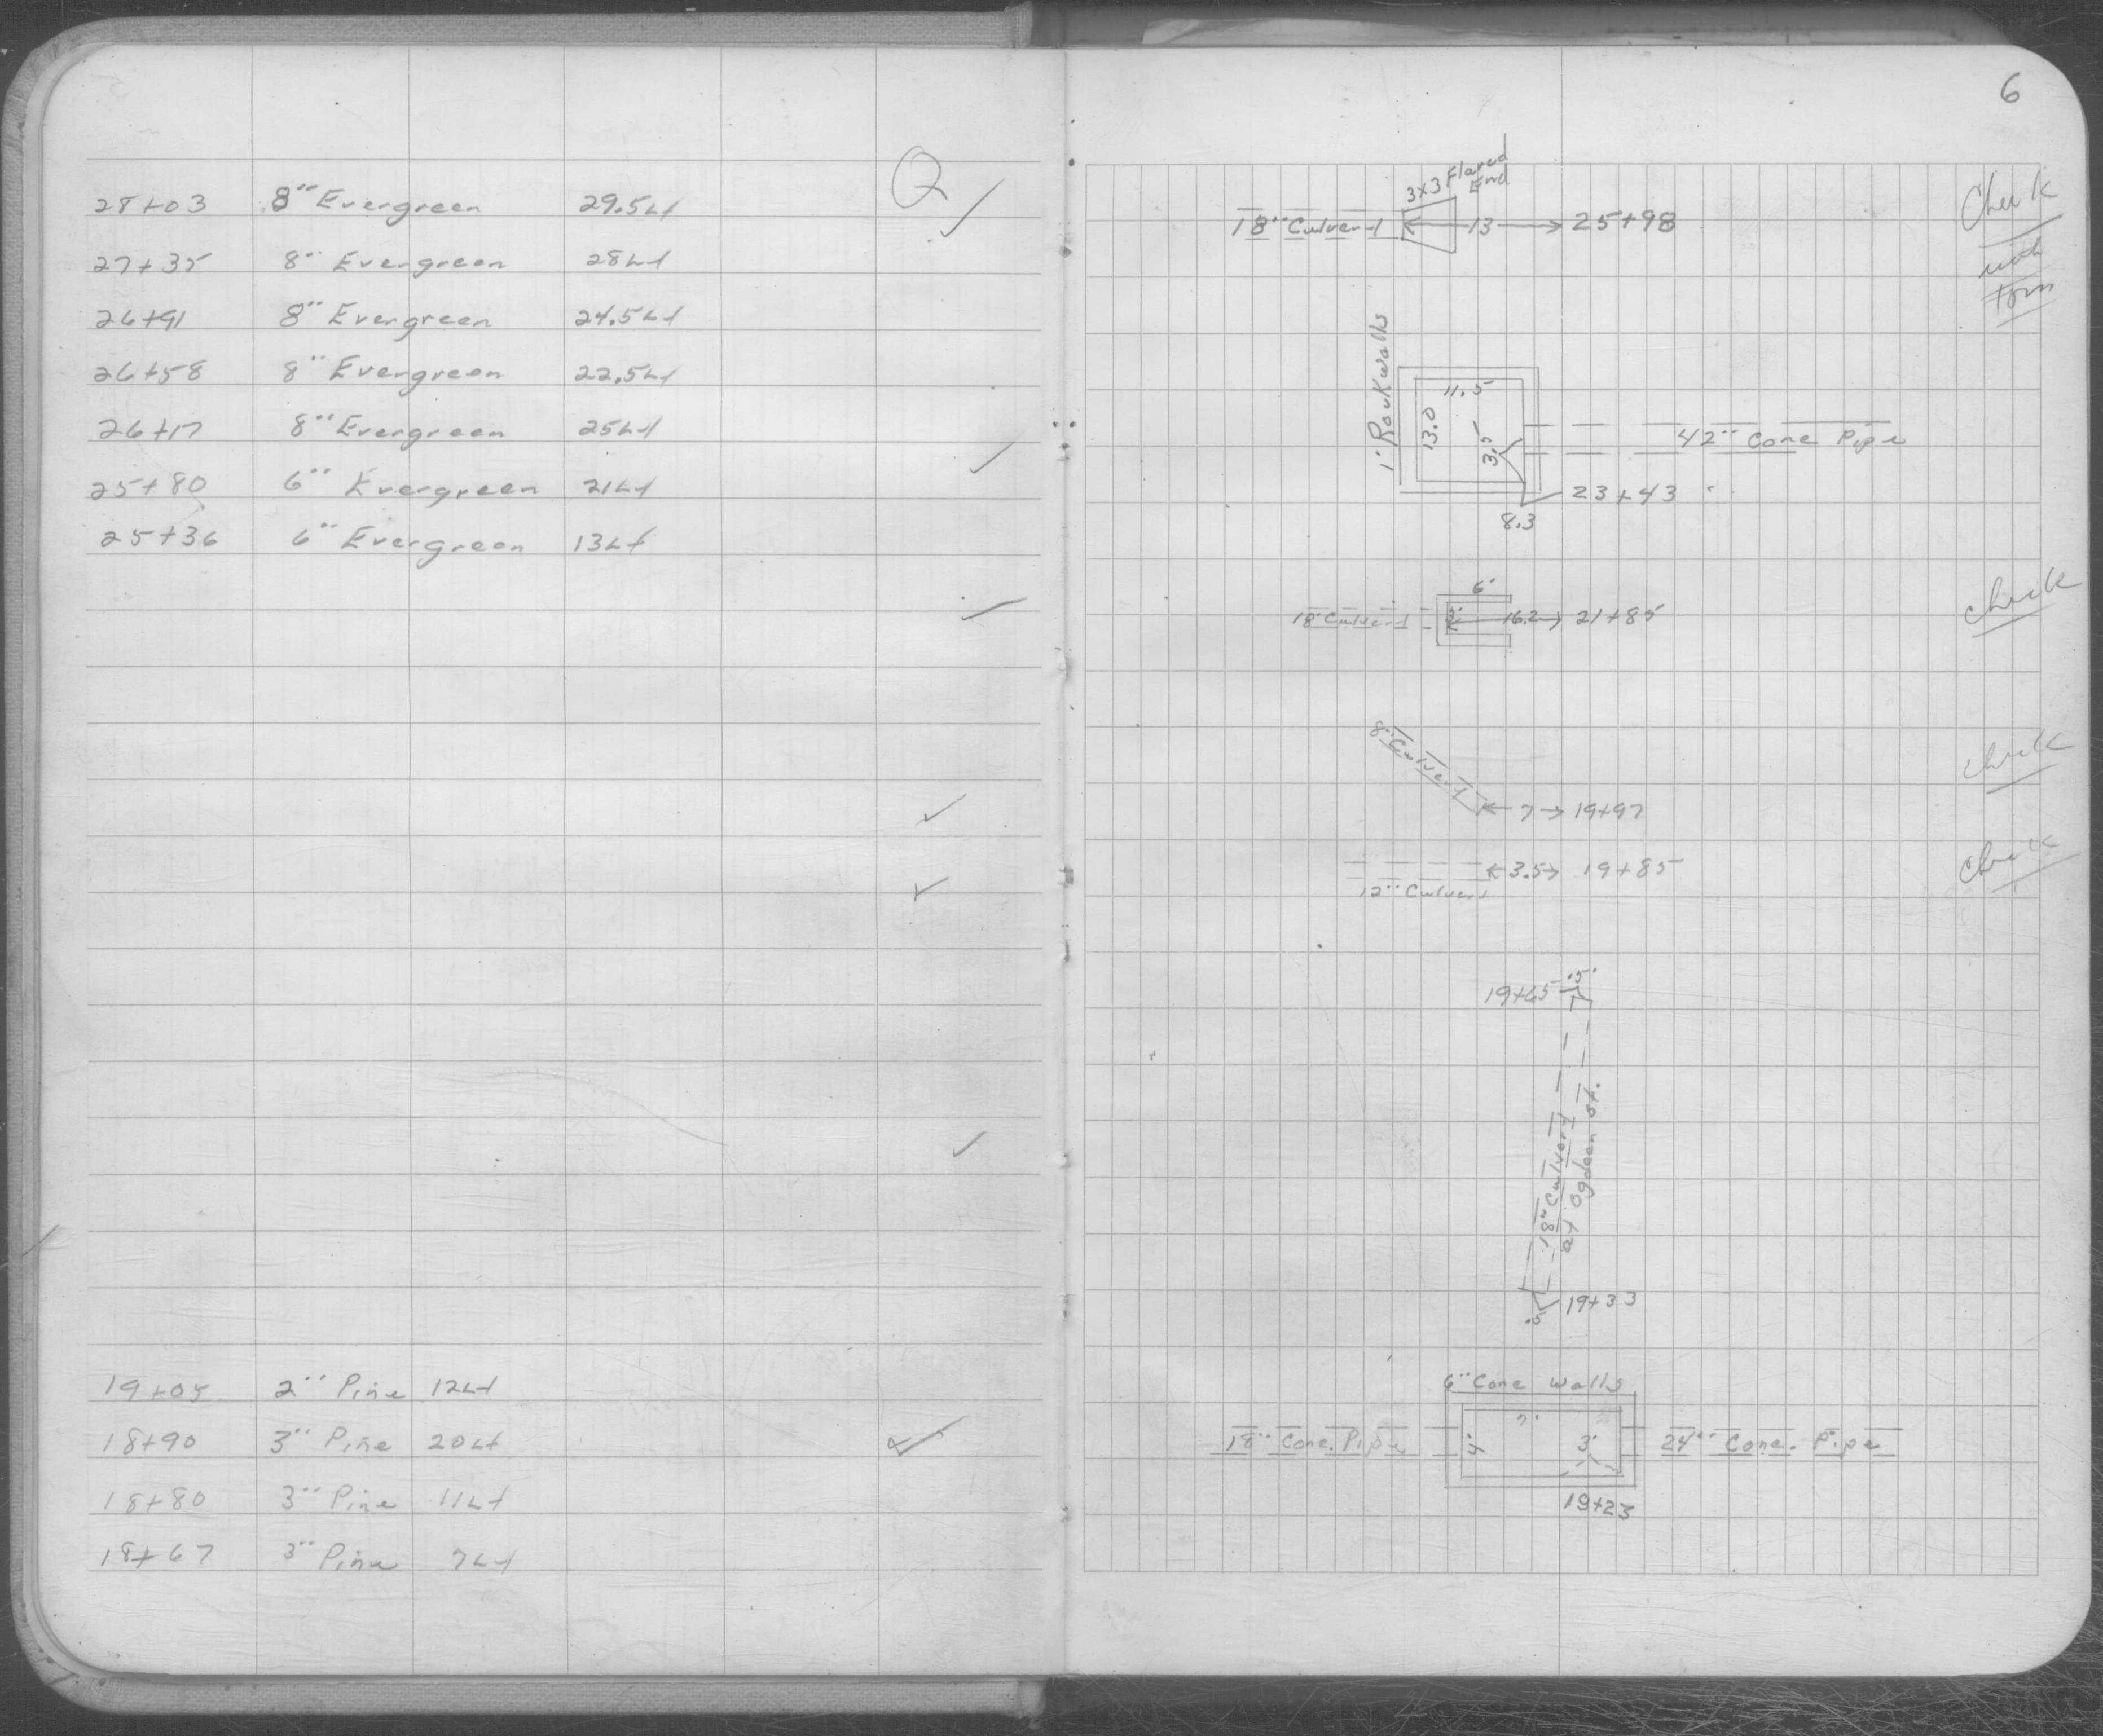 28+03 8" Evergreen 29.5Lt
27+35 8" Evergreen 28Lt
26+91 8" Evergreen 24.5Lt
26+58 8" Evergreen 22.5Lt
26+17 8" Evergreen 25Lt
25+80 6" Evergreen 21Lt
25+36 6" Evergreen 13Lt
19+05 2" Pine 12Lt
18+90 3" Pine 20Lt
18+80 3" Pine 11Lt
18+67 3" Pine 7Lt
6
3x3 Flared
End
18" Culvert 13 25+98
Check
with
Tom
1' Rock walls
11.5
13.0
3.5
42" Conc Pipe
23+43
8.3
6'
18" Culvert 3' 16.2 21+85
check
8" Culvert
7 19+97
check
3.5 19+85
12" Culvert
check
19+65 .5'
18" Culvert
at Ogden St.
19+33
6" Conc walls
7'
18" Conc. Pipe 4' 3' 24" Conc. Pipe
19+23